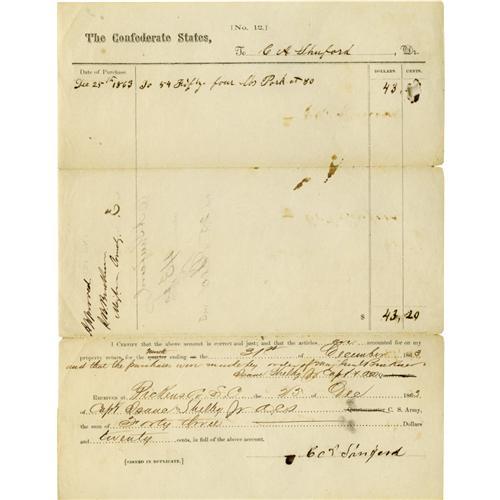 [No. 12.]
The Confederate States,
To C A Shuford, Dr.
Date of Purchase. DOLLARS CENTS.
Dec 25th 1863 To 54 Fifty four Lbs Pork at 80 43
Approved
$ 43, 20
I CERTIFY that the above account is correct and just; and that the articles are accounted for on my
property return for the month quarter ending on the 31st of December 1863
and that the purchase was made by order of
Isaac Shelby Jr Capt & acs
RECEIVED at Pickens C.H. S.C. the 25 of Dec 1863,
of Capt. Isaac Shelby Jr. acs Quartermaster C. S. Army,
the sum of Forty three Dollars
and twenty cents, in full of the above account.
[SIGNED IN DUPLICATE.]